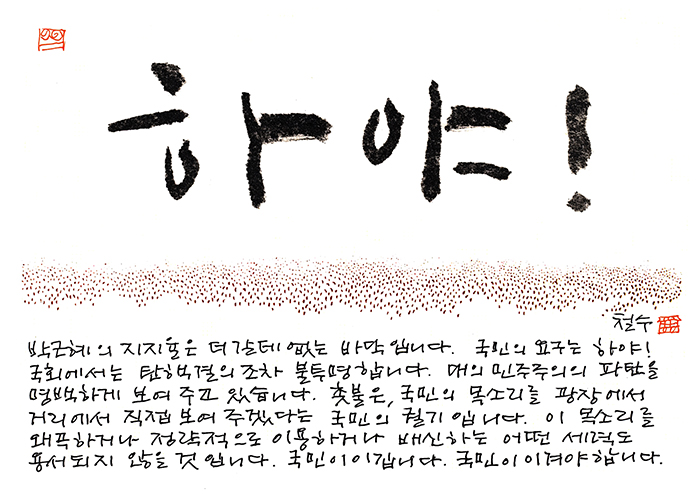 하야!
철수
박근혜의 지지율은 더 갈데 없는 바닥입니다. 국민의 요구는 하야!
국회에서는 탄핵결의조차 불투명합니다. 대의 민주주의의 파탄을
명백하게 보여 주고 있습니다. 촛불은, 국민의 목소리를 광장에서
거리에서 직접 보여 주겠다는 국민의 궐기입니다. 이 목소리를
왜곡하거나 정략적으로 이용하거나 배신하는 어떤 세력도
용서되지 않을 것입니다. 국민이 이깁니다. 국민이 이겨야 합니다.